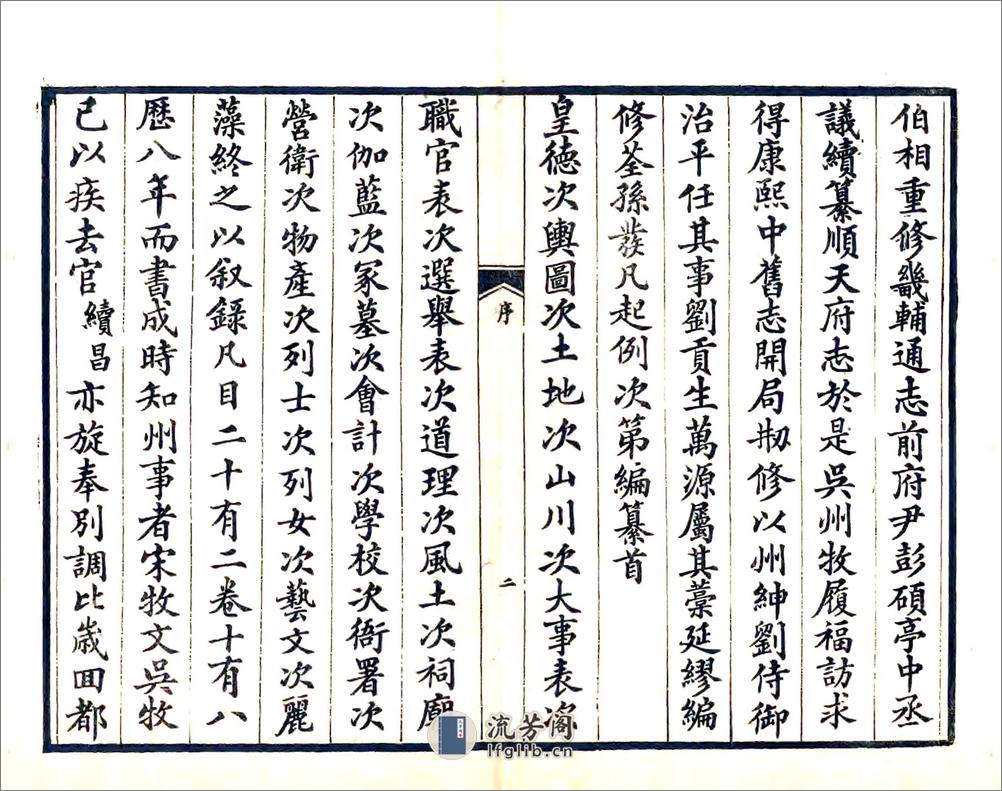 伯相重修畿輔通志前府尹彭碩亭中丞
議續纂順天府志於是吳州牧履福訪求
得康熙中舊志開局刱修以州紳劉侍御
治平任其事劉貢生萬源屬其藁延繆編
修荃孫發凡起例次第編纂首
皇德次輿圖次土地次山川次大事表次
序
二
職官表次選舉表次道理次風土次祠廟
次伽藍次冢墓次會計次學校次衙署次
營衛次物產次列士次列女次藝文次麗
藻終之以叙錄凡目二十有二卷十有八
歷八年而書成時知州事者宋牧文吳牧
已以疾去官續昌亦旋奉別調比歲回都
流芳阁
lfglib.cn